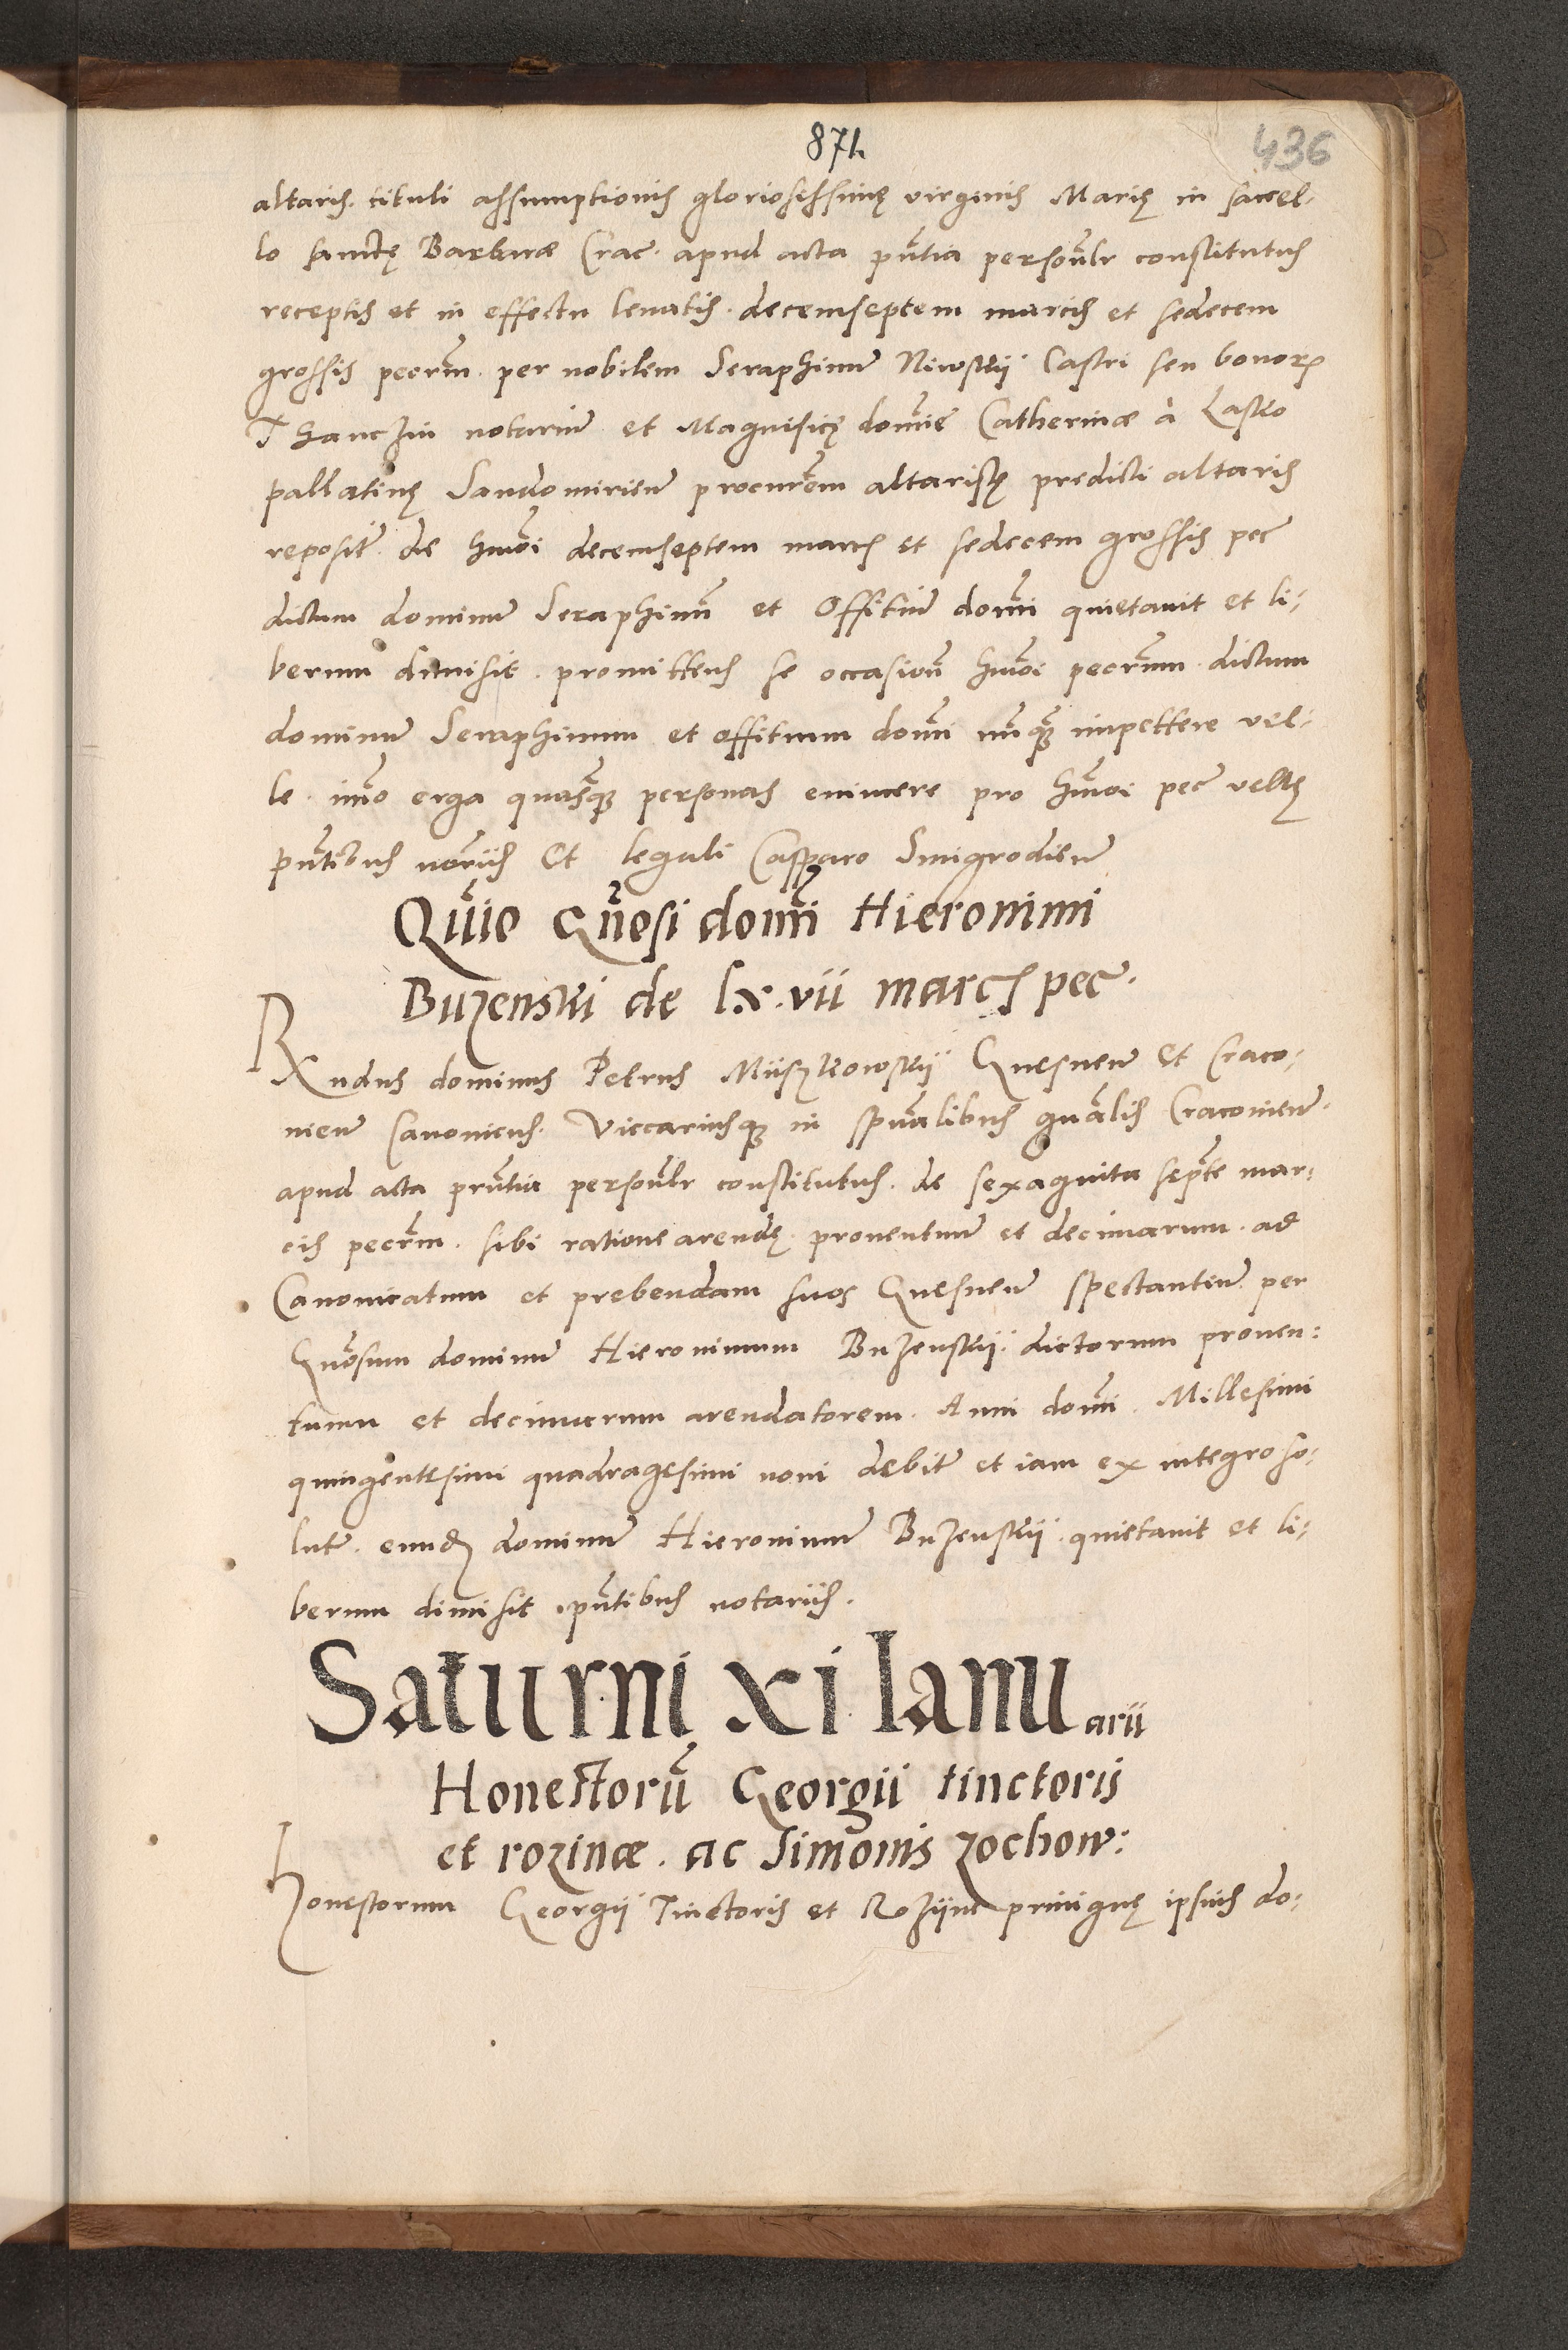 871
436
altaris tituli assumptionis gloriosissimę virginis Marię in sacel-
lo sanctę Barbaræ Crac. apud acta pñtia personlr constitutus
receptis et in effectu leuatis decemseptem marcis et sedecem
grossis pecrm per nobilem Seraphinũ Niwskÿ Castri seu bonorũ
Thanczin notariũ et Magnificę domiẽ Catherinæ à Lasko
pallatinę Sandomirieñ procurẽm altaristę predicti altaris
reposit̃ de hmõi decemseptem marcs et sedecem grossis pec
dictum dominũ Seraphinũ et Offitiũ domi quietauit et li-
berum dimisit. promittens se occasioñ hmõi pecrum dictum
dominũ Seraphinum et offitium domi nũquã impettere vel-
le. imo erga quasque personas euincere pro hmõi pec velle
pñtibus norijs Et legali Casparo Smigrodieñ
Quiẽ Gñosi domi Hieronimi
Buzenski de lx.vii marcs pec.
Rxndus dominus Petrus Müszkowskÿ Gnesneñ et Craco-
nieñ Canonicus. Viccariusque in spũalibus gñalis Cracovieñ.
apud acta prñtia personlr constitutus. de sexaginta septẽ mar-
cis pecrm. sibi ratione arendę prouentuũ et decimarum. ad
Canonicatum et prebendam suos Gnesneñ spectantiũ per
Gñosum dominũ Hieronimum Buzenskÿ. dictorum prouen-
tuum et decimarum arendatorem. Anni domi. Millesimi
quingentesimi quadragesimi noni debit̃ et iam ex integro so-
lut̃. eundẽ dominũ Hieronimũ Buzenskÿ quietauit et li-
berum dimisit pñtibus notarijs.
Saturni xi Ianuarii
Honestorũ Georgii tinctoris
et rozinæ. ac Simonis zochow:
Honestorum Georgÿ Tinctoris et Rozÿnæ priuignę ipsius do-